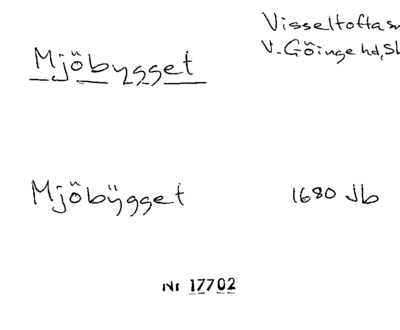 Mjöbygget
Visseltofta sn
V. Göinge hd, Sk
Mjöbÿgget
1680 Jb
Nr 17702